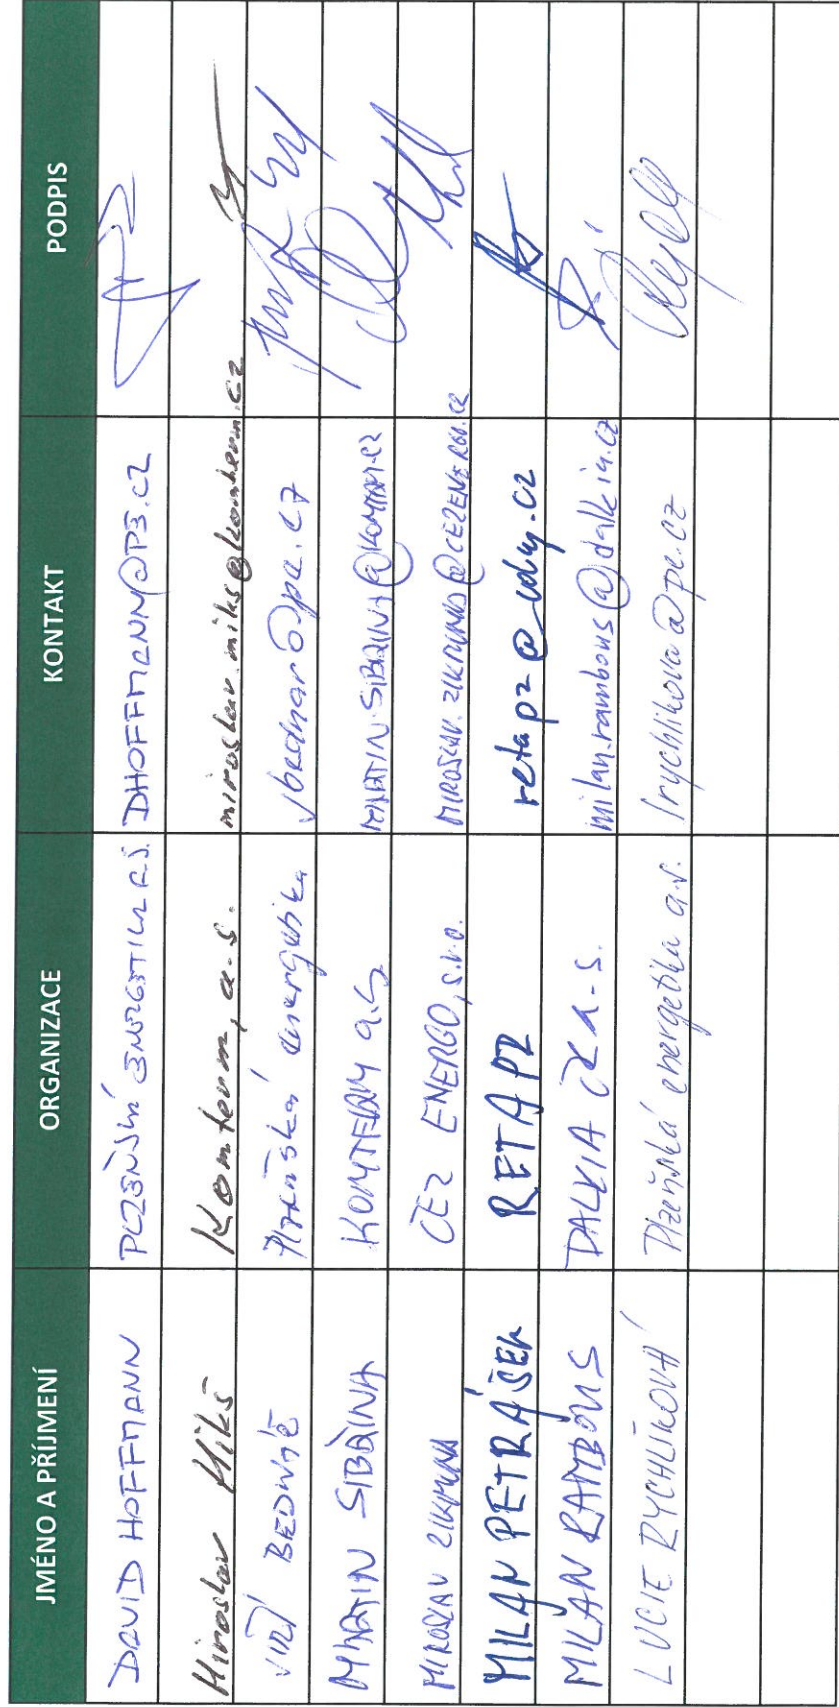 JMÉNO A PŘÍJMENÍ ORGANIZACE KONTAKT PODPIS
DAVID HOFFMANN PLZEŇSKÁ ENERGETIKA A.S. DHOFFMANN@PE.CZ
Miroslav Mikš Komterm, a.s. miroslav.miks@komterm.cz
JIŘÍ BEDNÁŘ Plzeňská energetika jbednar@pe.cz
MARTIN SIBŘINA KOMTERM a.s. MARTIN.SIBRINA@KOMTERM.CZ
MIROSLAV ZIKMUND ČEZ ENERGO, s.r.o. MIROSLAV.ZIKMUND@CEZENERGO.CZ
MILAN PETRÁŠEK RETAPZ retapz@volny.cz
MILAN RAMBOUS DALKIA ČR a.s. milan.rambous@dalkia.cz
LUCIE RYCHLÍKOVÁ Plzeňská energetika a.s. lrychlikova@pe.cz